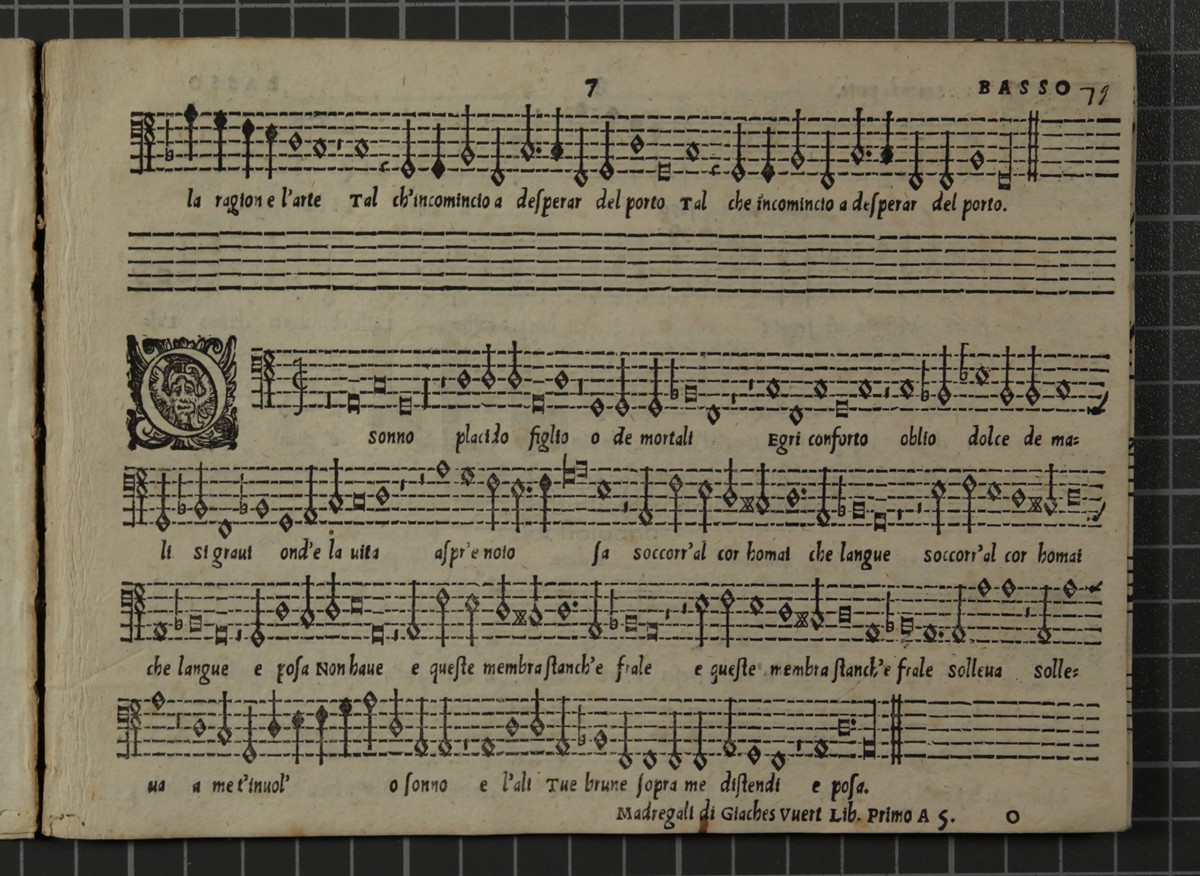 7 BASSO 79
la ragion e l'arte Tal ch'incomincio a desperar del porto Tal che incomincio a desperar del porto.
O sonno placido figlio o de mortali Egri conforto oblio dolce de ma=
li si graui ond'e la uita aspr'e noio sa soccorr'al cor homai che langue soccorr'al cor homai
che langue e posa Non haue e queste membra stanch'e frale e queste membra stanch'e frale solleua solle=
ua a me t'inuol' o sonno e l'ali Tue brune sopra me distendi e posa.
Madregali di Giaches Vuert Lib. Primo A 5. O